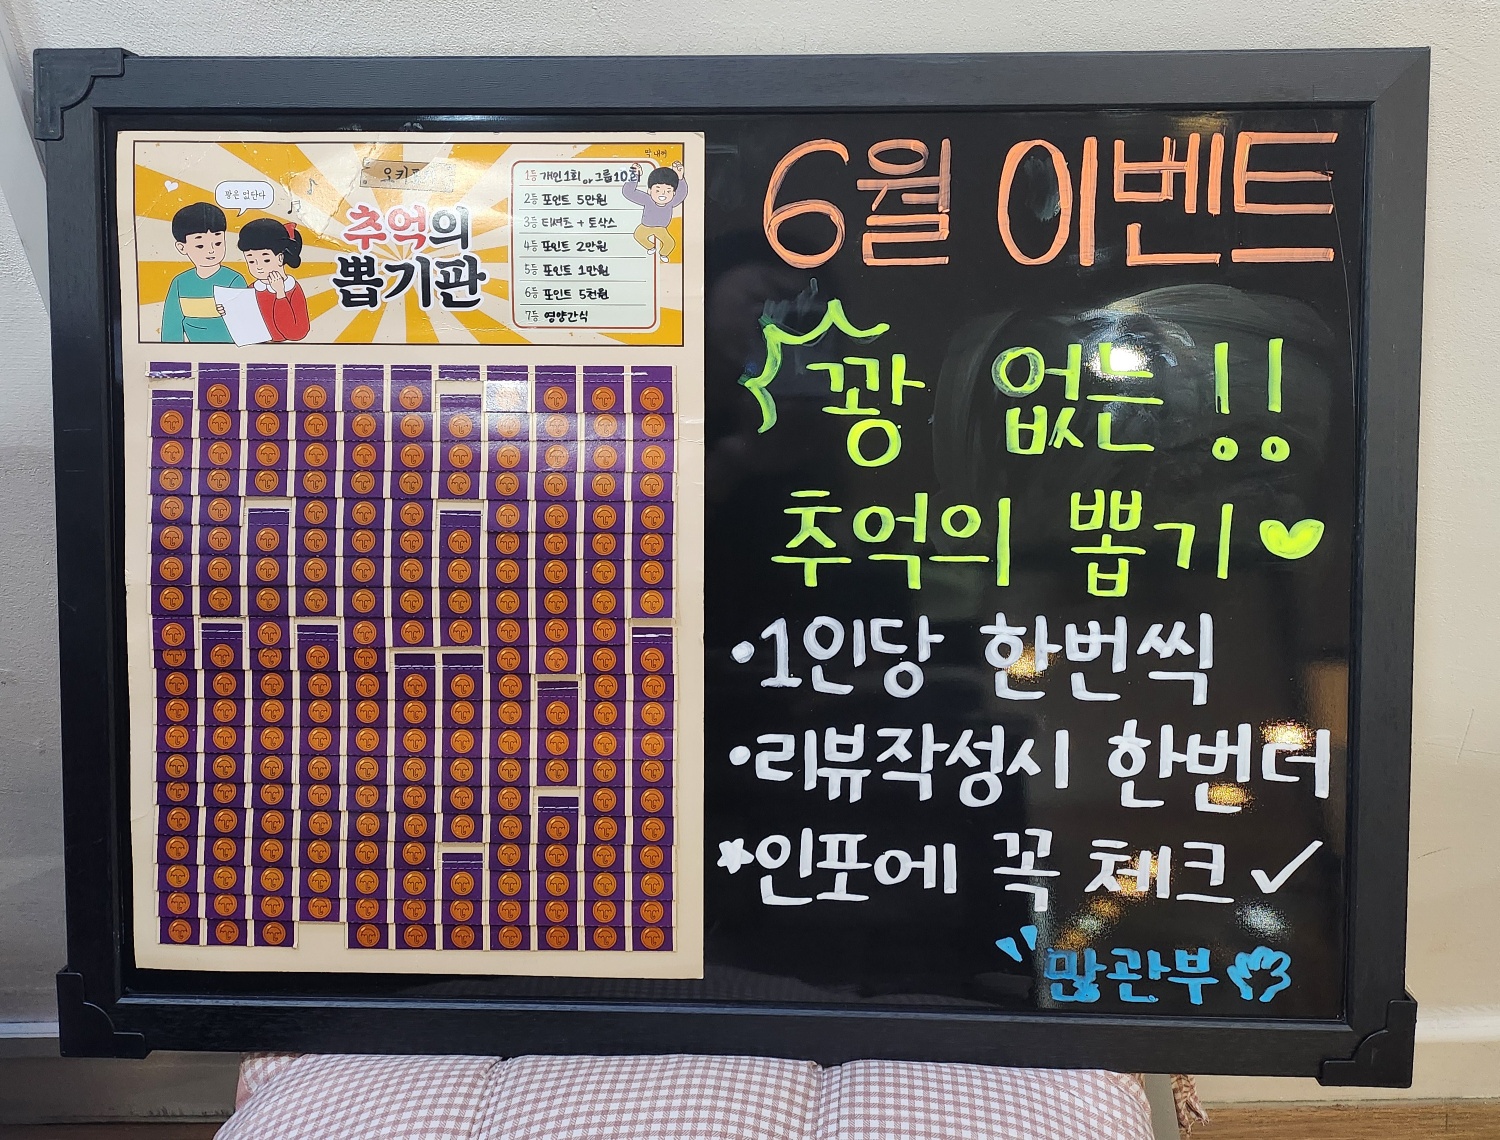 꽝은 없단다
추억의
뽑기판
1등 개인 1회 or 그룹 10회
2등 포인트 5만원
3등 티셔츠 + 토삭스
4등 포인트 2만원
5등 포인트 1만원
6등 포인트 5천원
7등 영양간식
6월 이벤트
꽝 없는 !!
추억의 뽑기
·1인당 한번씩
·리뷰작성시 한번더
인포에 꼭 체크 ✓
많관부